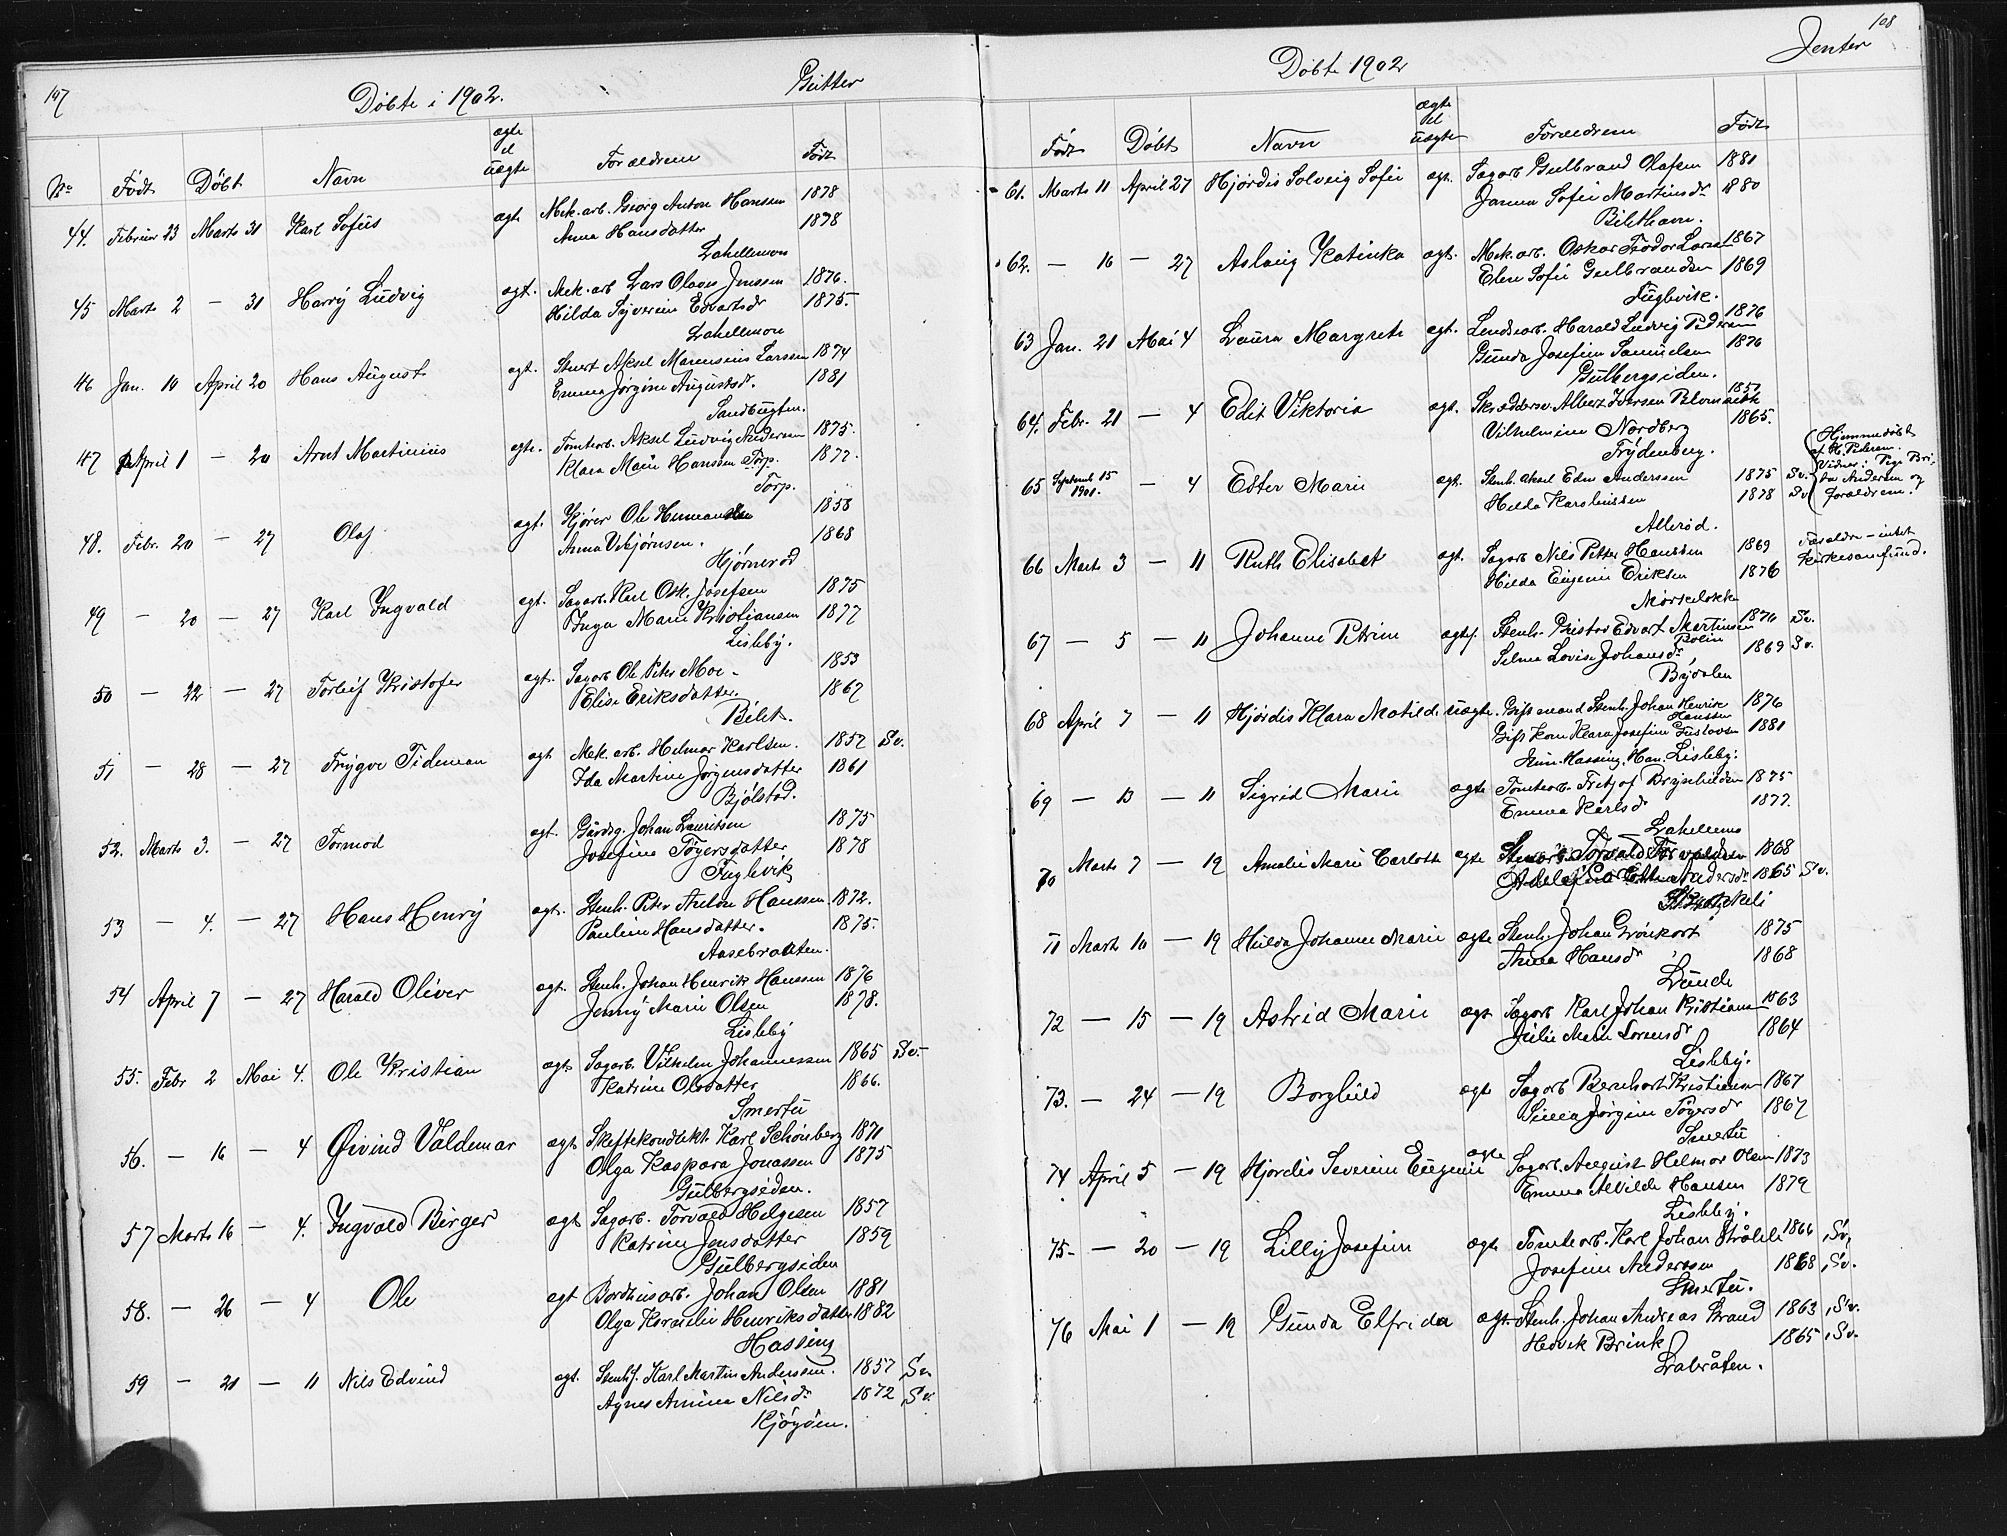 107
Döbte i 1902.
Gutter
No Födt Döbt Navn ægte el uægte Forældrene Födt
44. Februar 23 Marts 31 Karl Sofus ægt. Mek. arb. Georg Anton Hanssen 1878
Anna Hansdatter 1878
Lahellemoen
45 Marts 2 — 31 Harry Ludvig ægt. Mek. arb Lars Olaves Jenssen 1876.
Hilda Syverine Edvartsdr 1875.
Lahellemoen
46 Jan. 10 April 20 Hans August ægt. Stuert Aksel Larssen 1874
Emma Jörgine Augustsdr. 1881
Sandbugten.
47 April 1 — 20 Arnt Martinius ægte. Tomtearb. Aksel Ludvig Andersen 1875.
Klara Marie Hanssen Torp. 1877.
Torp.
48. Febr. 20 — 27 Olaf ægt. Kjörer Ole Hermansen 1858
Anna Vikjørnsen. 1868
Hjörneröd
49 — 20 — 27 Karl Yngvald ægt. Sagarb. Karl Osk. Josefsen 1875
Inga Marie Kristiansen 1877
Lisleby.
50 — 22 — 27 Torleif Kristofer ægt. Sagarb Ole Peter Moe - 1853
Elise Eriksdatter. 1867
Bilet.
51 — 28 — 27 Trygve Tideman ægt Mek. arb. Helmer Karlsen. 1857 Sv.
Ida Martine Jørgensdatter 1861
Bjölstad.
52. Marts 3. — 27 Tormod ægt. Gårdsg. Johan Lauritsen 1875
Josefine Töyersdatter 1878
Fuglevik
53 — 4. — 27 Hans Henry ægt. Stenh. Peter Anton Hanssen. 1872.
Pauline Hansdatter. 1875.
Aasebraaten.
54 April 7 — 27 Harald Oliver ægt. Stenh. Johan Henrik Hanssen 1876
Jenny Marie Olsen 1878.
Lisleby
55. Febr 2 Mai 4. Ole Kristian ægt. Sagarb. Vilhelm Johannessen 1865 Sv.
Katrine Olsdatter 1866.
Smertu
56. — 16 — 4 Øivind Valdemar ægt. Skiftekondukt. Karl Schönberg 1871
Olga Kaspara Jonassen 1875
Gulbergsiden.
57 Marts 16 — 4. Yngvald Birger ægt Sagarb. Torvald Helgesen 1857
Katrine Jensdatter 1859
Gulbergsiden
58. — 26 — 4 Ole ægt Bordhusarb. Johan Olsen 1881
Olga Karoline Henriksdatter 1882
Hassing
59 — 21 — 11 Nils Edvind ægt. Stenh. Karl Martin Anderssen. 1857 Sv.
Agnes Amina Nilsdr 1872 Sv.
Kjöyöen.
108
Döbte 1902
Jenter
Födt Döbt Navn ægte el uægte Forældrene Födt
61. Marts 11 April 27 Hjördis Solveig Sofie ægt. Sagarb Gulbrand Olafsen 1881
Janna Sofie Martinsdr 1880
62. — 16 — 27 Aslaug Katinka ægt. Mek. arb. Oskar Larsen 1867
Elen Sofie Gulbrandsen 1869
Fuglevik.
63 Jan. 21 Mai 4 Laura Margrete ægt. Lendsearb. Harald Ludvig Pedersen 1876
Gunda Josefine Samuelsen 1876
Gulbergsiden.
64. Febr. 21 — 4 Edit Viktoria ægt. Skræddersv. Albert Iversen 1857
Vilhelmine Nordberg 1865.
Frydenberg.
65 Septemb. 15 1901. — 4 Ester Marie ægt. Stenh. Aksel Edm. Anderssen 1875 Sv.
Hilda Karolinessen 1878 Sv
Alleröd.
Hjemmedöbt
af H. Petersen.
Vidner: Pige
Andersen og
forældrene.
66 Marts 3 — 11 Ruth Elisabet ægt. Sagarb Nils Petter Hanssen 1869
Hilda Eugenie Eriksen 1876
Forældre - intet
kirkesamfund.
67 — 5 — 11 Johanne Petrine ægt. Stenh. Kristov Edvart Martinsen 1876 Sv.
Selma Lovise Johansdr 1869 Sv.
Brydalen
68 April 7 — 11 Hjördis Klara Matilde uægte. Gift mand Stenh. Johan Henrik Hanssen 1876
Gift kone Klara Josefine Gustavsen 1881
Hun: Hassing. Han: Lisleby.
69 — 13 — 11 Sigrid Marie ægte Tomtearb. Fritjof Brynhildsen 1875
Emma Karlsdr 1877.
Lahellemo
70 Marts 7 — 19 Amalie Marie Carlotte ægte Torvald Torvaldsen 1868
Andersdr 1865 Sv.
71 Marts 10 — 19 Hulda Johanne Marie ægte Stenh. Johan Grönkort 1875
Anna Hansdr 1868
Lunde
72 — 15 — 19 Astrid Marie ægt Sagarb Karl Johan Kristiansen 1863
Julie Marie Lorensdr 1864
Lisleby.
73. — 24 — 19 Borghild ægte Sagarb Bernhart Kristiansen 1867
Sina Jörgine Töyersdr 1867
Smertu
74 April 5 — 19 Hjordis Severine Eugenie ægte Sagarb. August Helmer Olsen 1873
Emma Alvilde Hansen 1879
Lisleby.
75 — 20 — 19 Lilly Josefine ægte Tomtearb. Karl Johan Stråhle 1866 Sv.
Josefine Anderssen 1868 Sv.
Smertu.
76 Mai 1 — 19 Gunda Elfrida ægt. Stenh. Johan Andreas Brand 1863 Sv.
Hedvik Brink 1865 Sv.
Labråten.